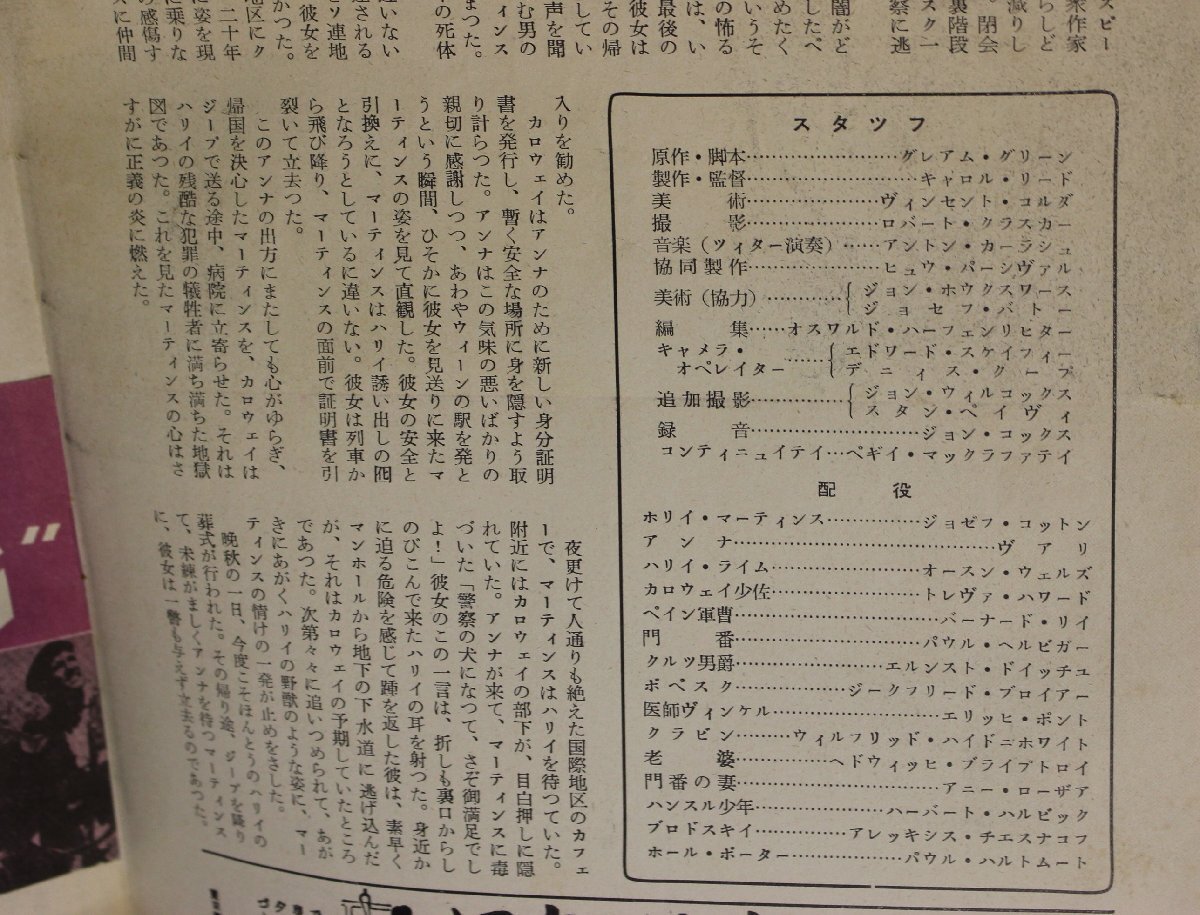 スピー
衆作家
らしど
減りし
。閉会
裏階段
スクー
察に逃
闇がど
したペ
いうそ
めたく
の怖る
は、い
最後の
その帰
彼女は
してい
声を聞
む男の
ィンス
まつた。
の死体
違いない
達される
ソ連地
彼女を
かつた。
地区にク
二十年
に姿を現
に乗りな
の感傷す
スに仲間
入りを勧めた。
カロウェイはアンナのために新しい身分証明
書を発行し、暫く安全な場所に身を隠すよう取
り計らつた。アンナはこの気味の悪いばかりの
親切に感謝しつつ、あわやウィーンの駅を発と
うという瞬間、ひそかに彼女を見送りに来たマ
ーティンスの姿を見て直観した。彼女の安全と
引換えに、マーティンスはハリイ誘い出しの囮
となろうとしているに違いない。彼女は列車か
ら飛び降り、マーティンスの面前で証明書を引
裂いて立去つた。
このアンナの出方にまたしても心がゆらぎ、
帰国を決心したマーティンスを、カロウェイは
ジープで送る途中、病院に立寄らせた。それは
ハリイの残酷な犯罪の犠牲者に満ち満ちた地獄
図であつた。これを見たマーティンスの心はさ
すがに正義の炎に燃えた。
夜更けて人通りも絶えた国際地区のカフェ
ーで、マーティンスはハリイを待つていた。
附近にはカロウェイの部下が、目白押しに隠
れていた。アンナが来て、マーティンスに毒
づいた「警察の犬になつて、さぞ御満足でし
よ！」彼女のこの一言は、折しも裏口からし
のびこんで来たハリイの耳を射つた。身近か
に迫る危険を感じて踵を返した彼は、素早く
マンホールから地下の下水道に逃げ込んだ
が、それはカロウェイの予期していたところ
であつた。次第々々に追いつめられて、あが
きにあがくハリイの野獣のような姿に、マー
ティンスの情けの一発が止めをさした。
晩秋の一日、今度こそほんとうのハリイの
葬式が行われた。その帰り途、ジープを降り
て、未練がましくアンナを待つマーティンス
に、彼女は一瞥も与えず立去るのであつた。
スタツフ
原作・脚本……………グレアム・グリーン
製作・監督……………キャロル・リード
美　　術……………ヴィンセント・コルダ
撮　　影……………ロバート・クラスカー
音楽（ツィター演奏）……アントン・カーラシュ
協同製作……………ヒュウ・パーシヴァル
美術（協力）…………ジョン・ホウクスワース
ジョセフ・バトー
編　　集……オスワルド・ハーフェンリヒター
キャメラ・
オペレイター……エドワード・スケイフィー
デニィス・クープ
追加撮影……………ジョン・ウィルコックス
スタン・ペイヴィ
録　　音……………ジョン・コックス
コンティニュイテイ…ペギイ・マックラファテイ
配　役
ホリイ・マーティンス……………ジョゼフ・コットン
アンナ……………ヴアリ
ハリイ・ライム……………オースン・ウェルズ
カロウェイ少佐……………トレヴァ・ハワード
ペイン軍曹……………バーナード・リイ
門　　番……………パウル・ヘルビガー
クルツ男爵……………エルンスト・ドイッチュ
ポペスク……………ジークフリード・ブロイアー
医師ヴィンケル……………エリッヒ・ポント
クラビン……ウィルフリッド・ハイドニホワイト
老　　婆……………ヘドウィッヒ・ブライブトロイ
門番の妻……………アニー・ローザア
ハンスル少年……………ハーバート・ハルビック
ブロドスキイ……………アレッキシス・チエスナコフ
ホール・ポーター……………パウル・ハルトムート